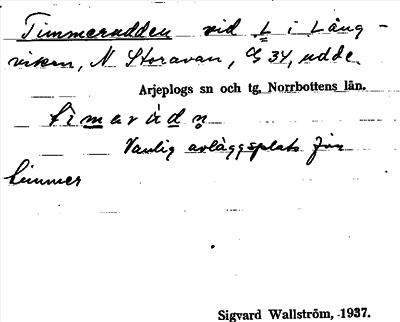 Timmerudden vid L i Lång-
viken, N Storavan, G 34, udde.
Arjeplogs sn och tg, Norrbottens län.
Vanlig avläggsplats för
timmer
Sigvard Wallström, 1937.